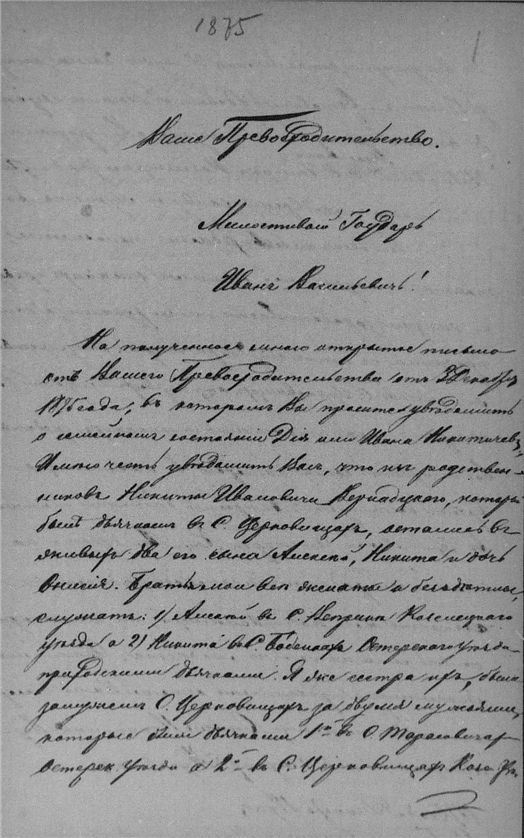 1875
1
Ваше Превосходительство.
Милостивый Государь
Иванъ Васильевичъ!
На полученное мною открытое письмо
отъ Вашего Превосходительства отъ 3 Декабря
1875 года, въ которомъ Вы просите увѣдомить
о семейномъ состояніи Дѣя или Ивана Никитичевъ,
Имѣю честь увѣдомить Васъ, что изъ родствен-
никовъ Никиты Ивановича Вернадскаго, который
былъ дьячкомъ въ С. Церковищахъ, остались въ
живыхъ два его сына Алексѣй, Никита и дочь
Братья мои всѣ женаты и бездѣтные,
служатъ: 1) Алексѣй въ С. Козелецкаго
уѣзда а 2) Никита въ С. Остерскаго уѣзда
приходскими дьячками. Я же сестра ихъ, была
замужемъ С. Церковищахъ за двумя мужьями,
которые были дьячками 1й въ С. Тарасовичахъ
Остерск. уѣзда а 2й въ С. Церковищахъ Козе. уѣз.